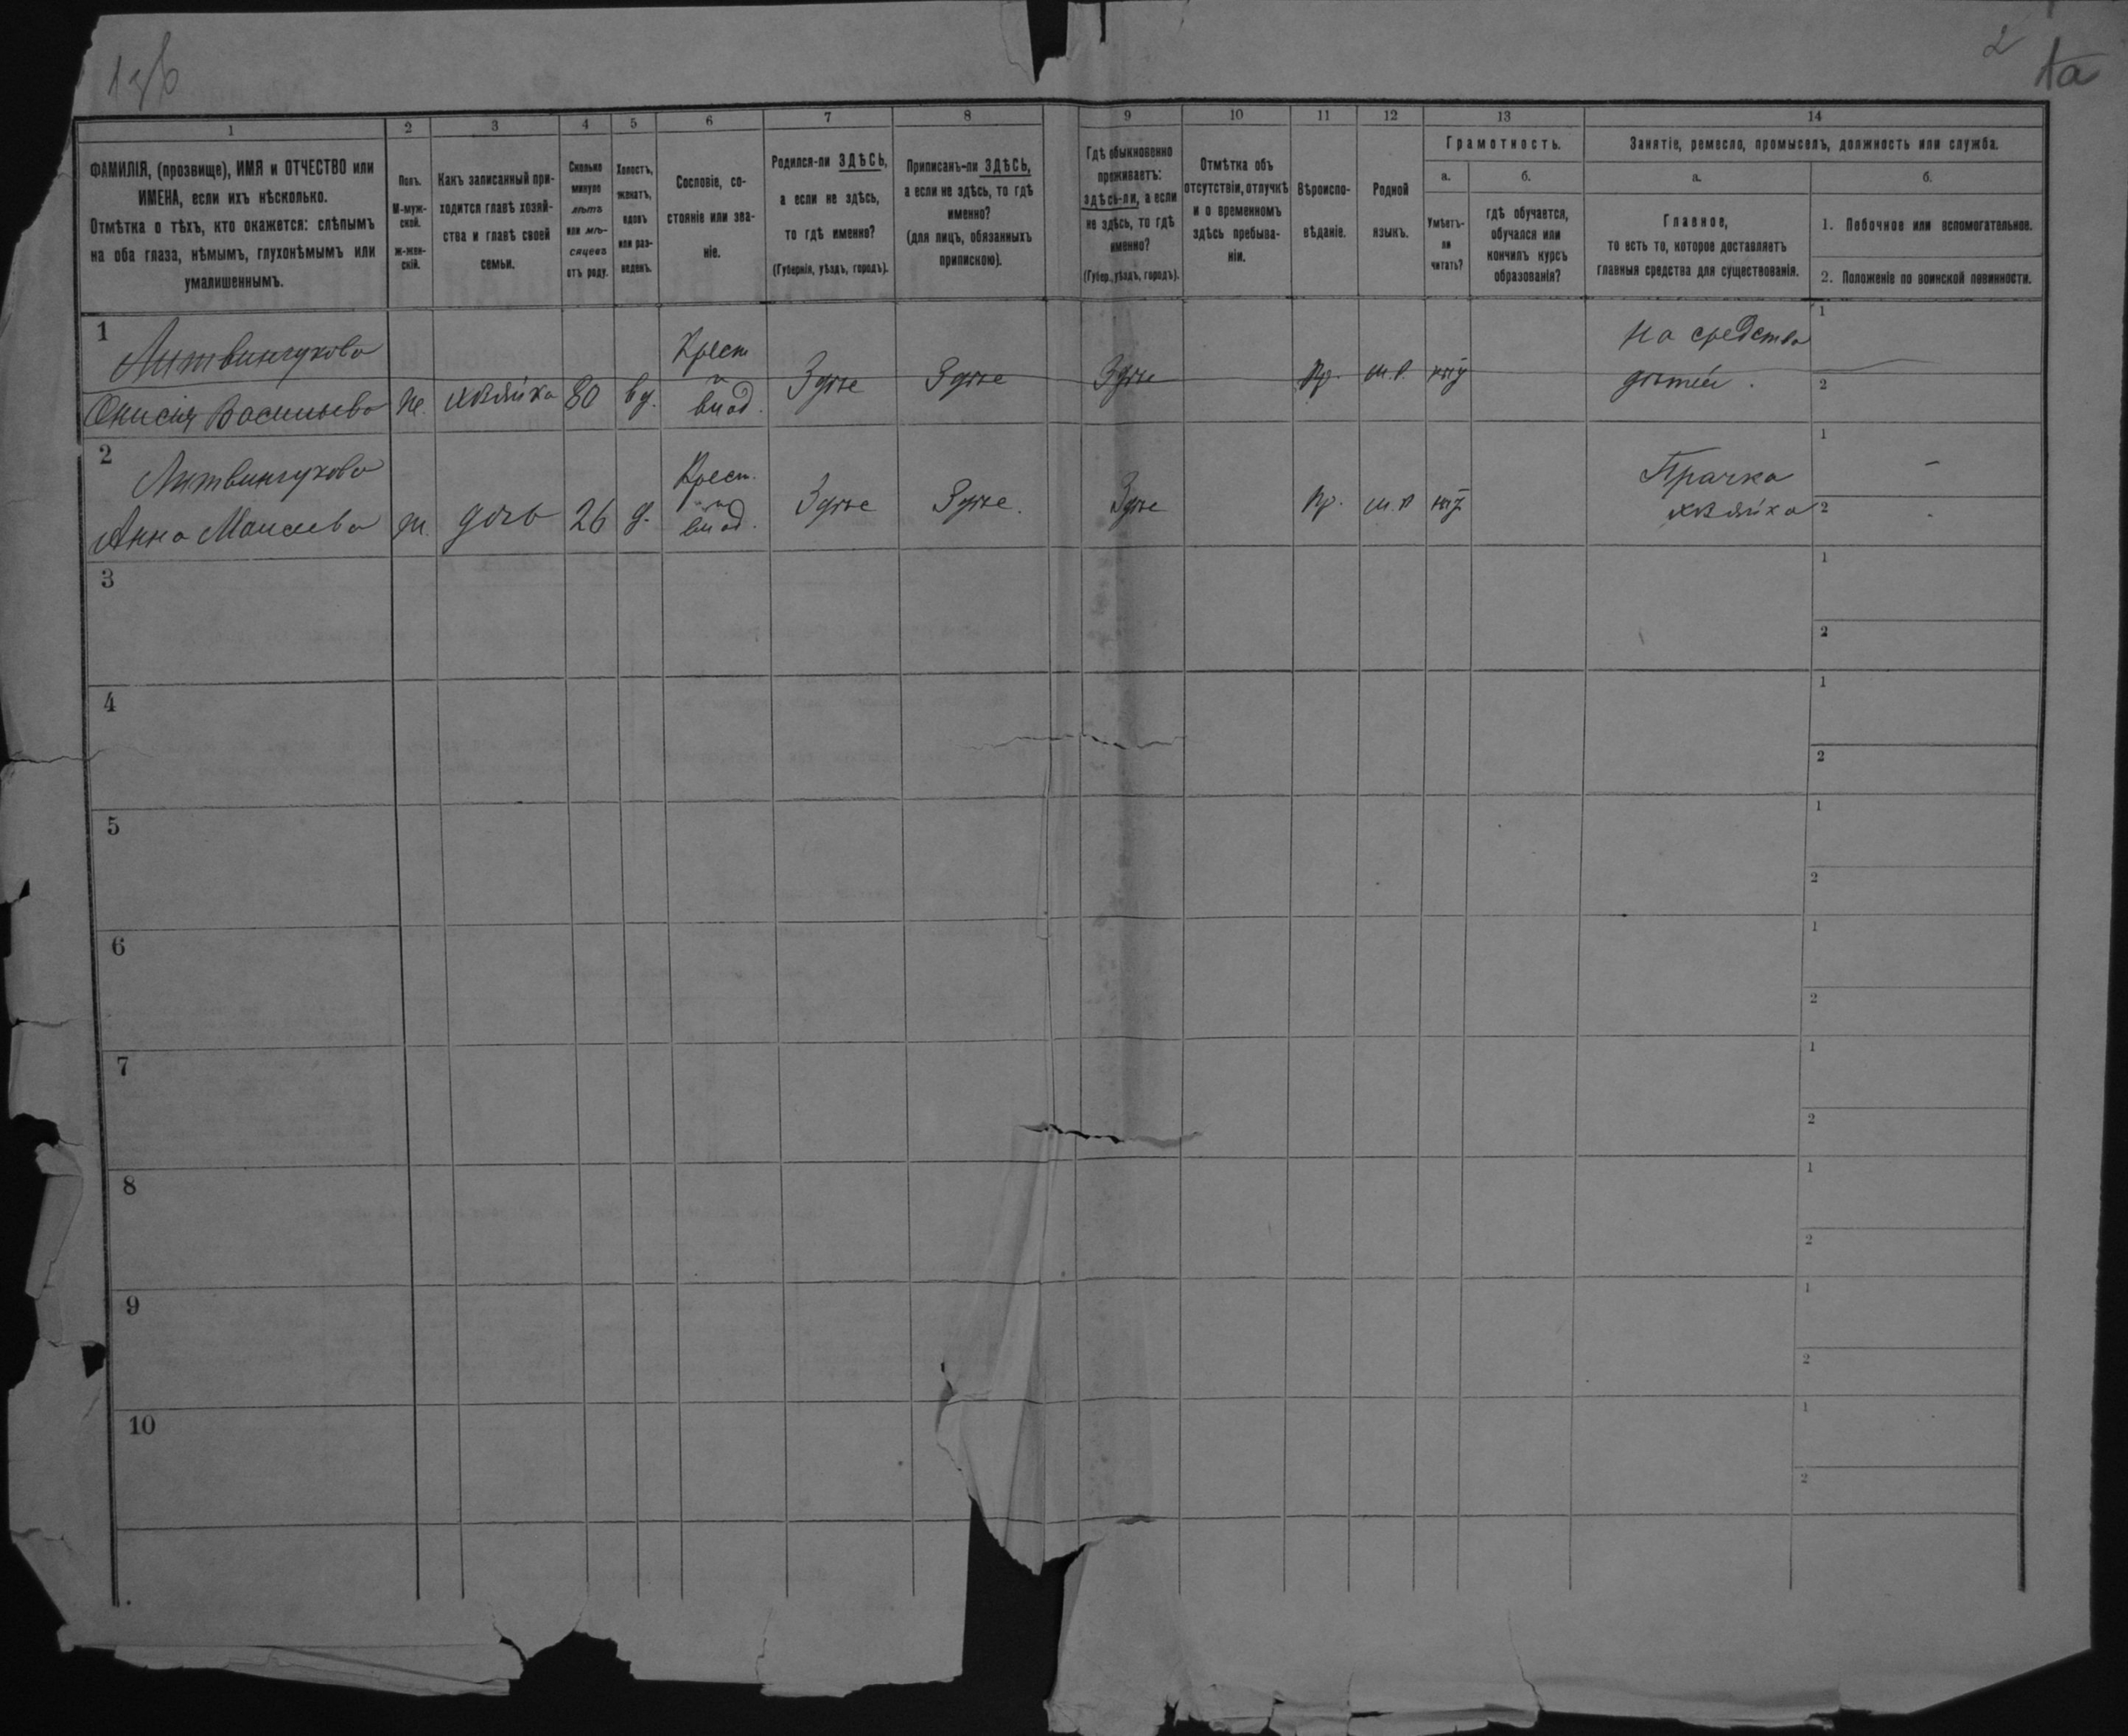 2
1а
1 2 3 4 5 6 7 8 9 10 11 12 13 14
ФАМИЛІЯ, (прозвище), ИМЯ и ОТЧЕСТВО или
ИМЕНА, если ихъ нѣсколько.
Отмѣтка о тѣхъ, кто окажется: слѣпымъ
на оба глаза, нѣмымъ, глухонѣмымъ или
умалишеннымъ.
Полъ.
М-муж-
ской.
ж-жен-
скій.
Какъ записанный при-
ходится главѣ хозяй-
ства и главѣ своей
семьи.
Сколько
минуло
лѣтъ
или мѣ-
сяцевъ
отъ роду.
Холостъ,
женатъ,
вдовъ
или раз-
веденъ.
Сословіе, со-
стояніе или зва-
ніе.
Родился-ли ЗДѢСЬ,
а если не здѣсь,
то гдѣ именно?
(Губернія, уѣздъ, городъ).
Приписанъ-ли ЗДѢСЬ,
а если не здѣсь, то гдѣ
именно?
(для лицъ, обязанныхъ
припискою).
Гдѣ обыкновенно
проживаетъ:
здѣсь-ли, а если
не здѣсь, то гдѣ
именно?
(Губер., уѣздъ, городъ).
Отмѣтка объ
отсутствіи, отлучкѣ
и о временномъ
здѣсь пребыва-
ніи.
Вѣроиспо-
вѣданіе.
Родной
языкъ.
Грамотность.
а.
Умѣетъ-
ли
читать?
б.
гдѣ обучается,
обучался или
кончилъ курсъ
образованія?
Занятіе, ремесло, промыселъ, должность или служба.
а.
Главное,
то есть то, которое доставляетъ
главныя средства для существованія.
б.
1. Побочное или вспомогательное.
2. Положеніе по воинской повинности.
1
Литвинчукова Крест на средства 1
Васильева ж. хозяйка 80 вд. Здѣсь Здѣсь Здѣсь Пр. м.р. нѣт дѣтей. 2
2
Литвинчукова Крест. Прачка 1 -
Анна ж. дочь 26 д. Здѣсь Здѣсь. Здѣсь Пр. м.р нѣт хозяйка 2
3 1
2
4 1
2
5 1
2
6 1
2
7 1
2
8 1
2
9 1
2
10 1
2